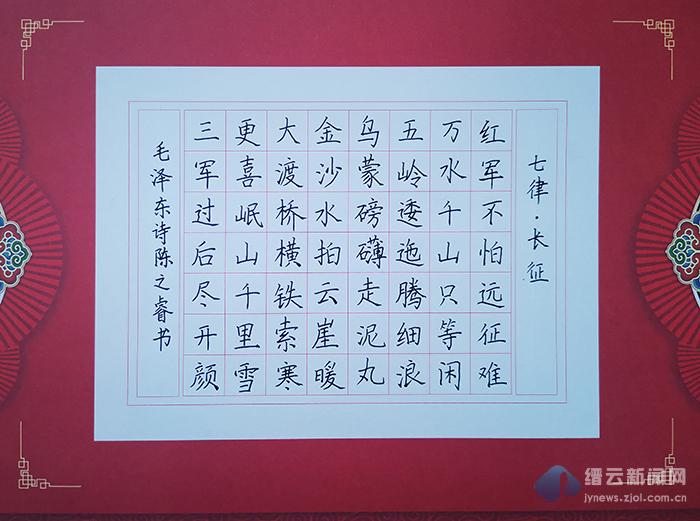 七律·长征
红军不怕远征难
万水千山只等闲
五岭逶迤腾细浪
乌蒙磅礴走泥丸
金沙水拍云崖暖
大渡桥横铁索寒
更喜岷山千里雪
三军过后尽开颜
毛泽东诗陈之睿书
缙云新闻网
jynews.zjol.com.cn